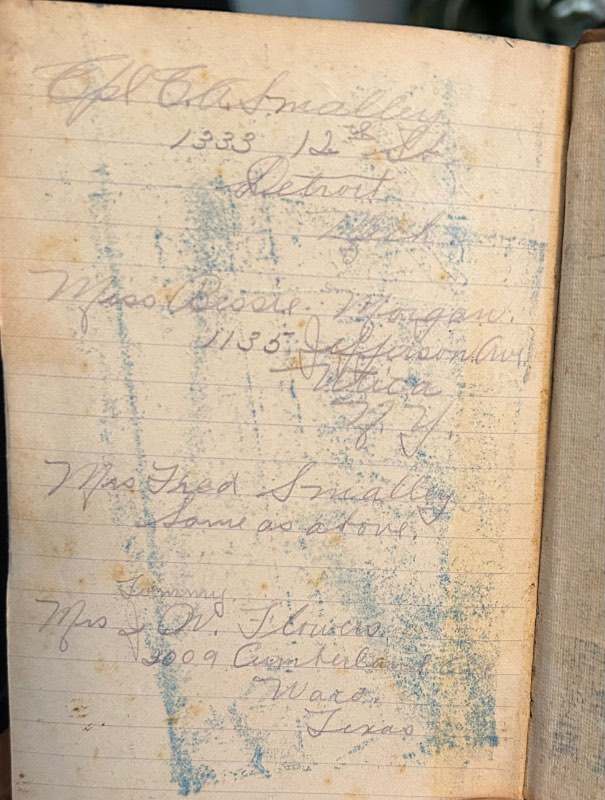 Cpl C. A. Smalley
1333 12th St.
Detroit
Mich
Miss Bessie Morgan.
1135 Jefferson Ave
Utica
N. Y.
Mrs Fred Smalley
Same as above.
Tommy
Mrs J. W. Flowers
2009 Cumberland
Waco,
Texas